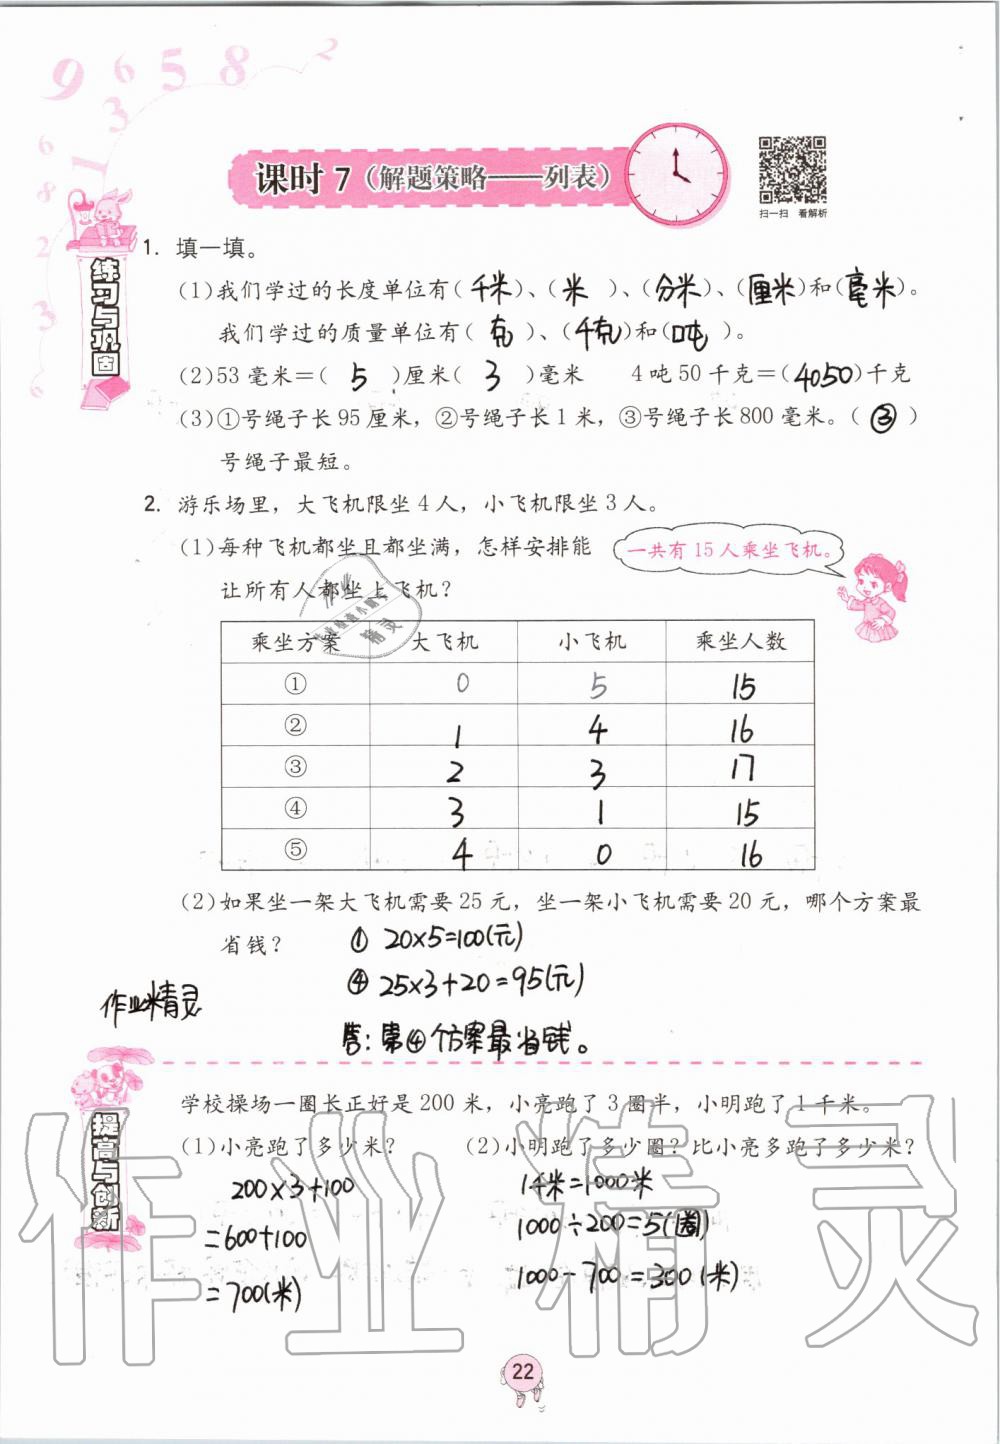 9 6 5 8 2
3
1
6
8
2
3
6
课时7（解题策略——列表）
扫一扫 看解析
练习与巩固
1. 填一填。
(1)我们学过的长度单位有(千米)、(米)、(分米)、(厘米)和(毫米)。
我们学过的质量单位有(克)、(千克)和(吨)。
(2)53毫米=(5)厘米(3)毫米 4吨50千克=(4050)千克
(3)①号绳子长95厘米，②号绳子长1米，③号绳子长800毫米。(③)
号绳子最短。
2. 游乐场里，大飞机限坐4人，小飞机限坐3人。
(1)每种飞机都坐且都坐满，怎样安排能
让所有人都坐上飞机？
一共有15人乘坐飞机。
作业
精灵
乘坐方案 大飞机 小飞机 乘坐人数
① 0 5 15
② 1 4 16
③ 2 3 17
④ 3 1 15
⑤ 4 0 16
(2)如果坐一架大飞机需要25元，坐一架小飞机需要20元，哪个方案最
省钱？
① 20×5=100(元)
④ 25×3+20=95(元)
答：第④个方案最省钱。
作业精灵
提高与创新
学校操场一圈长正好是200米，小亮跑了3圈半，小明跑了1千米。
(1)小亮跑了多少米？
200×3+100
=600+100
=700(米)
(2)小明跑了多少圈？比小亮多跑了多少米？
1千米=1000米
1000÷200=5(圈)
1000-700=300(米)
作业精灵
22